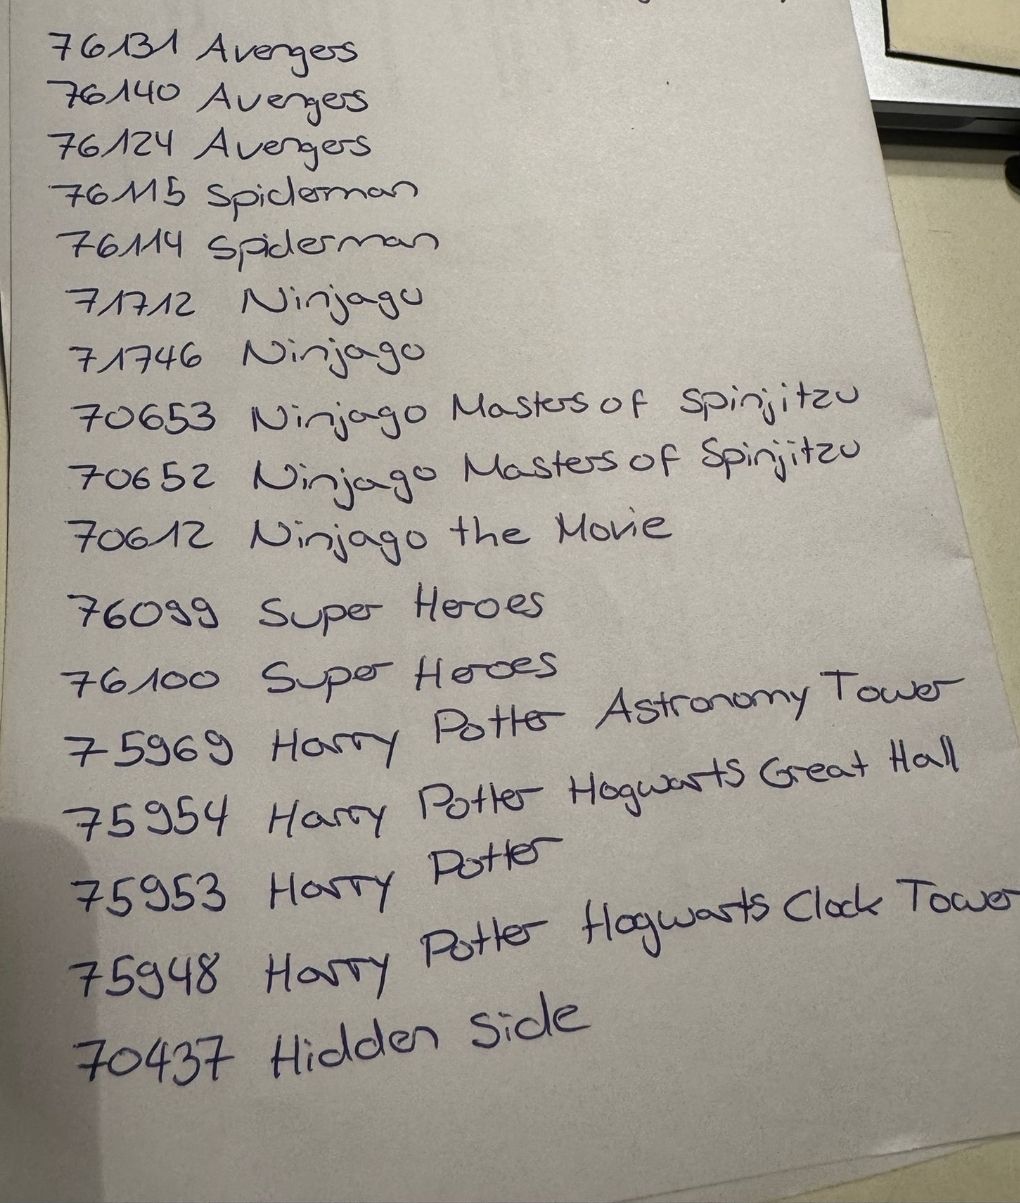 76131 Avengers
76140 Avengers
76124 Avengers
76115 Spiderman
76114 Spiderman
71712 Ninjago
71746 Ninjago
70653 Ninjago Masters of Spinjitzu
70652 Ninjago Masters of Spinjitzu
70612 Ninjago the Movie
76099 Super Heroes
76100 Super Heroes
75969 Harry Potter Astronomy Tower
75954 Harry Potter Hogwarts Great Hall
75953 Harry Potter
75948 Harry Potter Hogwarts Clock Tower
70437 Hidden Side